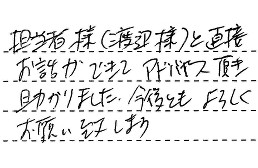 担当者様(渡辺様)と直接
お話ができて アドバイス頂き
助かりました。今後とも よろしく
お願い致します